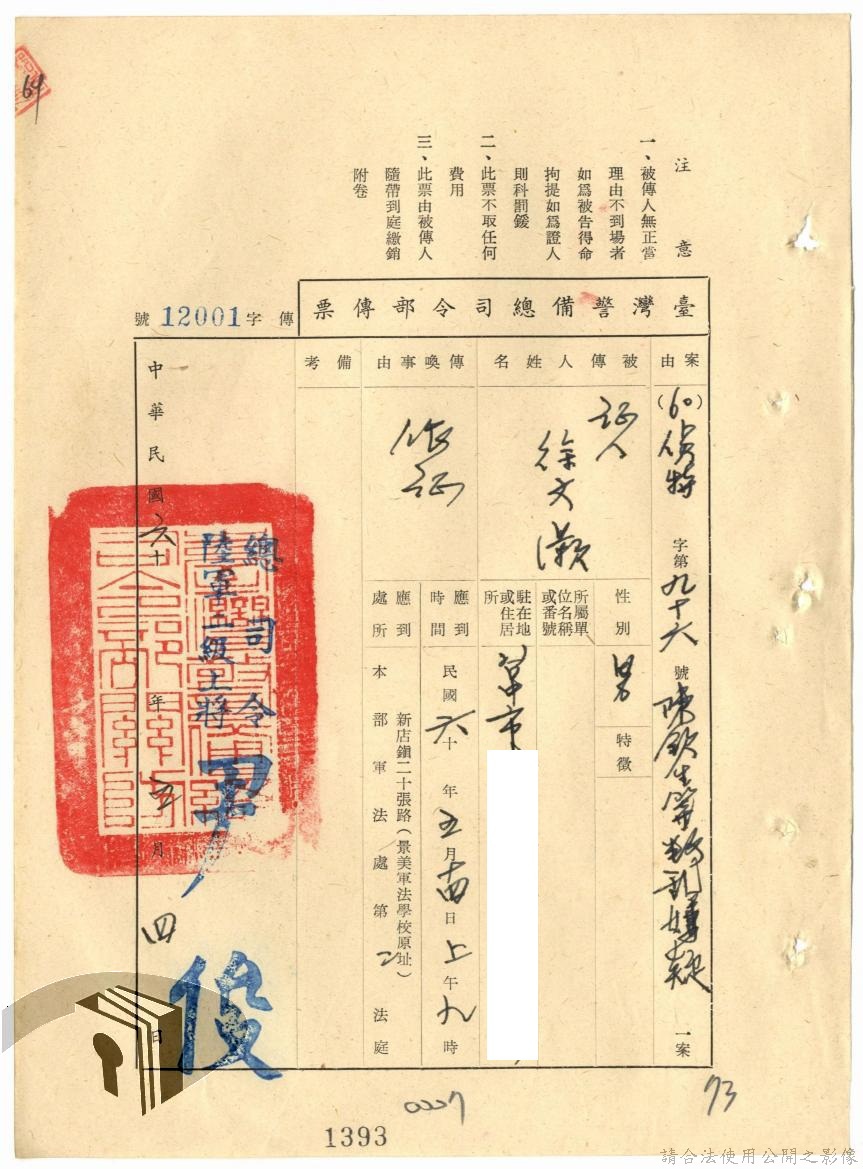 64
注意
一、被傳人無正當
理由不到場者
如爲被告得命
拘提如爲證人
則科罰鍰
二、此票不取任何
費用
三、此票由被傳人
隨帶到庭繳銷
附卷
臺灣警備總司令部傳票
傳字12001號
案由
(60)偵特字第九十六號陳欽生等叛亂嫌疑一案
被傳人姓名
証人
徐文灝
性別
男
特徵
所屬單
位名稱
或番號
駐在地
或住居
所
台中市
傳喚事由
作証
應到
時間
民國六十年五月十四日上午九時
應到
處所
新店鎭二十張路(景美軍法學校原址)
本部軍法處第二法庭
備考
總司令
陸軍二級上將
尹俊
中華民國六十年五月四日
0007
73
1393
請合法使用公開之影像